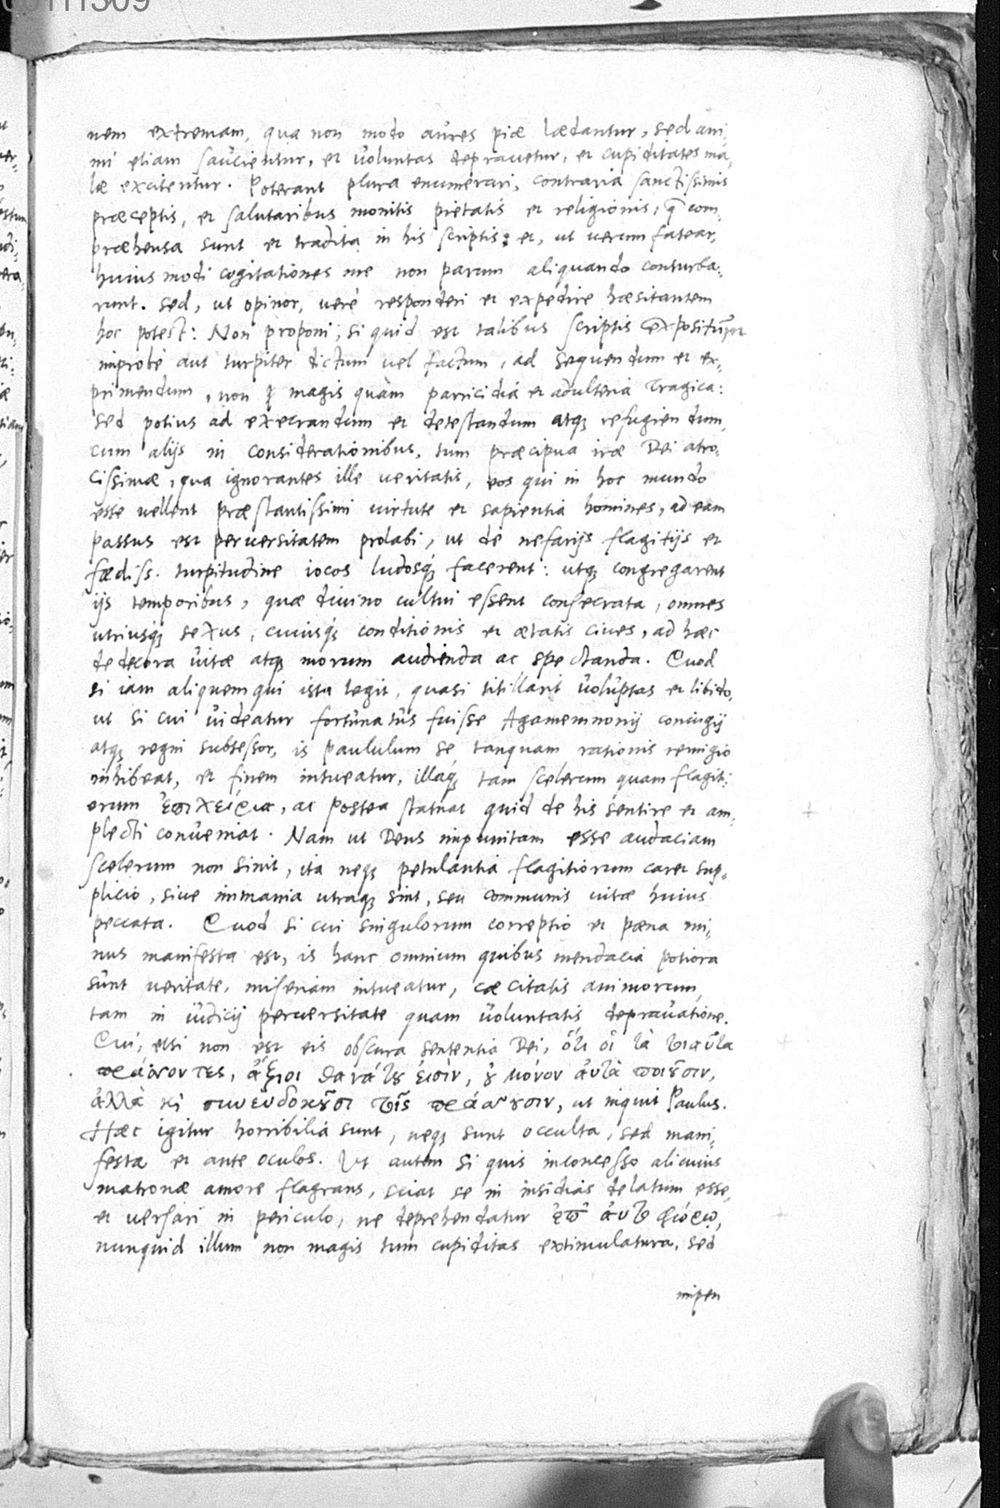 00111309
nem extremam, qua non modo aures piæ lædantur, sed ani,
mi etiam saucientur, et voluntas deprauetur, et cupiditates ma,
læ excitentur. Poterant plura enumerari, contraria sanctissimis
præceptis, et salutaribus monitis pietatis et religionis, q̃ com,
præhensa sunt et tradita in his scriptis: et, ut uerum fatear,
huiusmodi cogitationes me non parum aliquando conturba,
runt. Sed, ut opinor, verè responderi et expedire hæsitantem
hoc potest: Non proponi, si quid est talibus scriptis expositum
improbè aut turpiter dictum uel factum, ad sequendum et ex,
primendum, non magis quàm parricidia et adulteria Tragica:
Sed potius ad execrandum et detestandum atq; refugiendum,
cum alijs in considerationibus, tum præcipua iræ Dei atro,
cissimæ, qua ignorantes ille veritatis, eos qui in hoc mundo
esse vellent præstantissimi uirtute et sapientia homines, ad eam
passus est peruersitatem prolabi, ut de nefarijs flagitijs et
fœdiss. turpitudine iocos ludosq; facerent: utq; congregarent
ijs temporibus, quæ diuino cultui essent consecrata, omnes
utriusq; sexus, cuiusq; conditionis et ætatis ciues, ad hæc
dedecora uitæ atq; morum audienda ac spectanda. Quod
si iam aliquem qui ista legit, quasi titillarit voluptas et libido,
ut si cui uideatur fortunatus fuisse Agamemnonij coniugij
atq; regni subsessor, is paululum se tanquam rationis remigio
inhibeat, et finem intueatur, illaq; tam scelerum quam flagiti,
orum ἐπιχείρα, ac postea statuat quid de his sentire et am,
plecti conueniat. Nam ut Deus impunitam esse audaciam
scelerum non sinit, ita neq; petulantia flagitiorum caret sup,
plicio, siue immania utraq; sint, seu communis uitæ huius
peccata. Quod si cui singulorum correptio et pœna mi,
nus manifesta est, is hanc omnium quibus mendacia potiora
sunt veritate, miseriam intueatur, cæcitatis animorum,
tam in iudicij peruersitate quam voluntatis deprauatione.
Cui, etsi non est eis obscura sententia Dei, ὅτι οἱ τὰ τοιαῦτα
πράσσοντες, ἄξιοι θανάτȣ εἰσὶν, ȣ μόνον αὐτὰ ποιοῦσιν,
ἀλλὰ κὶ συνευδοκοῦσι τοῖς πράσσȣσιν, ut inquit Paulus.
Hæc igitur horribilia sunt, neq; sunt occulta, sed mani,
festa et ante oculos. Ut autem si quis inconcesso alicuius
matronæ amore flagrans, sciat se in insidias delatum esse,
et uersari in periculo, ne deprehendatur ἐπ' αὐτοφώρῳ,
nunquid illum non magis tum cupiditas extimulatura, sed
impen